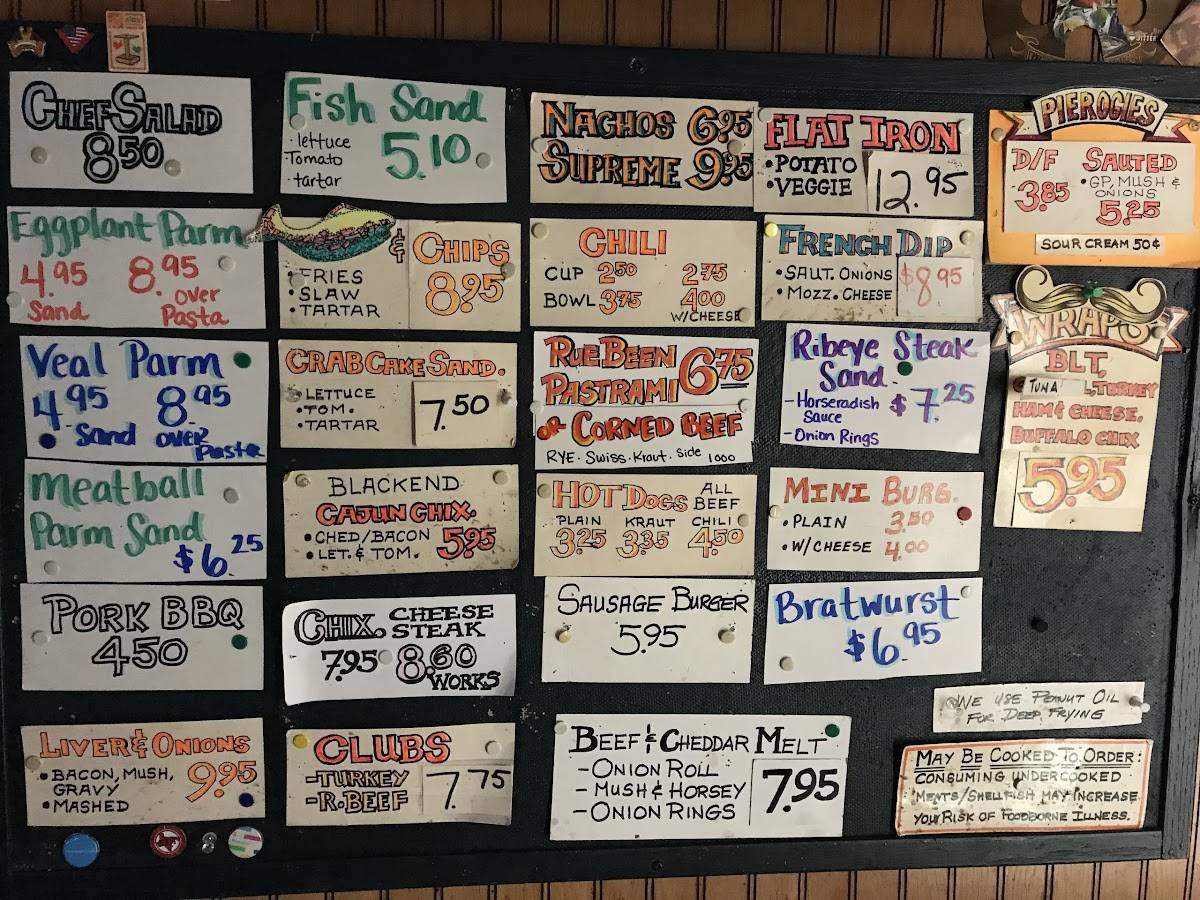 CHEF SALAD
8.50
Fish Sand
· lettuce
Tomato
· tartar
5.10
NACHOS 6.95
SUPREME 9.95
FLAT IRON
• POTATO
• VEGGIE
12.95
PIEROGIES
D/F
3.85
SAUTED
• GP, MUSH &
ONIONS
5.25
SOUR CREAM 50¢
Eggplant Parm
4.95
Sand
8.95
over
Pasta
& CHIPS
• FRIES
• SLAW
• TARTAR
8.95
CHILI
CUP 2.50 2.75
BOWL 3.75 4.00
W/CHEESE
FRENCH DIP
• SAUT. ONIONS
• MOZZ. CHEESE
$8.95
WRAPS
BLT,
TUNA, TURKEY
HAM & CHEESE.
BUFFALO CHIX
5.95
Veal Parm
4.95 8.95
Sand over
Pasta
CRAB CAKE SAND.
• LETTUCE
• TOM.
• TARTAR
7.50
RUE BEEN
PASTRAMI 6.75
OR CORNED BEEF
RYE · Swiss · Kraut · Side 1000
Ribeye Steak
Sand.
- Horseradish
Sauce
- Onion Rings
$7.25
Meatball
Parm Sand
$6.25
BLACKEND
CAJUN CHIX.
• CHED/BACON
• LET. & TOM.
5.95
HOT DOGS ALL
BEEF
PLAIN KRAUT CHILI
3.25 3.35 4.50
MINI BURG.
• PLAIN 3.50
• W/CHEESE 4.00
PORK BBQ
4.50
CHIX. CHEESE
STEAK
7.95 8.60
WORKS
SAUSAGE BURGER
5.95
Bratwurst
$6.95
WE USE PEANUT OIL
FOR DEEP FRYING
LIVER & ONIONS
• BACON, MUSH,
GRAVY
• MASHED
9.95
CLUBS
- TURKEY
- R. BEEF
7.75
BEEF & CHEDDAR MELT
- ONION ROLL
- MUSH & HORSEY
- ONION RINGS
7.95
MAY BE COOKED TO ORDER:
CONSUMING UNDERCOOKED
MEATS/SHELLFISH MAY INCREASE
YOUR RISK OF FOODBORNE ILLNESS.